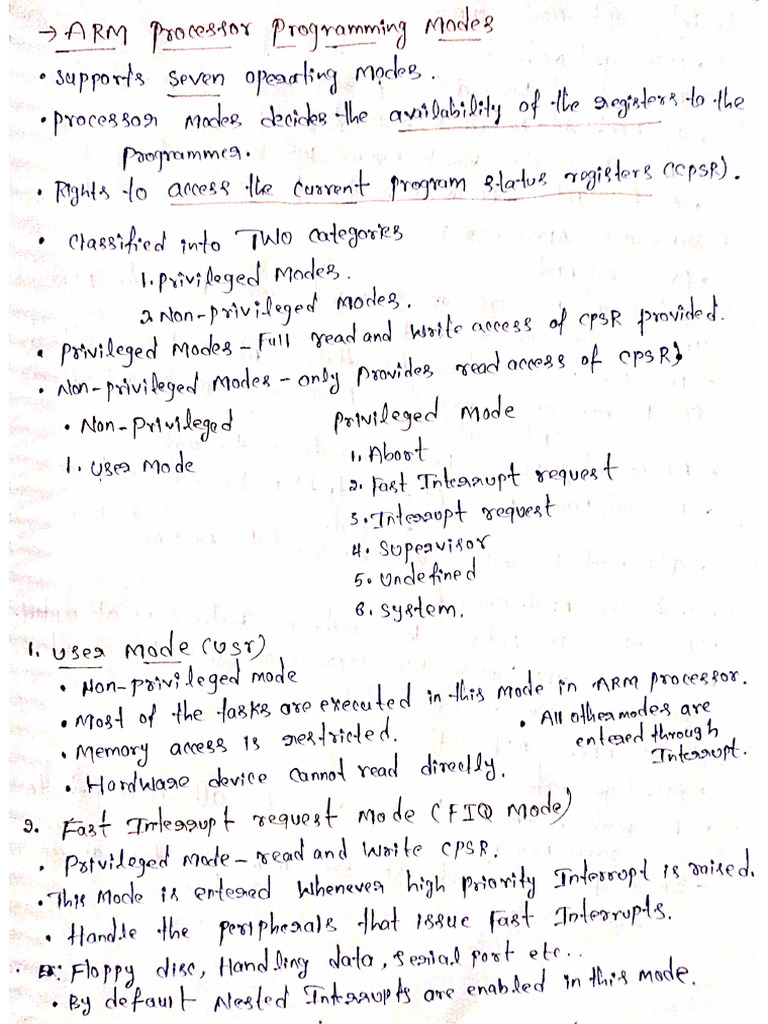 → ARM Processor Programming Modes
• Supports seven operating Modes.
• Processor Modes decides the availability of the registers to the
Programmer.
• Rights to access the current program status registers (CPSR).
• Classified into TWO categories
1. Privileged Modes.
2. Non-privileged modes.
• Privileged Modes - Full read and write access of CPSR provided.
• Non-privileged Modes - only provides read access of CPSR}
• Non-Privileged
1. User Mode
Privileged Mode
1. Abort
2. Fast Interrupt request
3. Interrupt request
4. Supervisor
5. Undefined
6. System.
1. User Mode (usr)
• Non-privileged mode
• Most of the tasks are executed in this mode in ARM processor.
• Memory access is restricted.
• Hardware device cannot read directly.
• All other modes are
entered through
Interrupt.
2. Fast Interrupt request Mode (FIQ Mode)
• Privileged mode - read and write CPSR.
• This Mode is entered whenever high priority Interrupt is raised.
• Handle the peripherals that issue Fast Interrupts.
• Ex: Floppy disc, Handling data, serial port etc..
• By default Nested Interrupts are enabled in this mode.